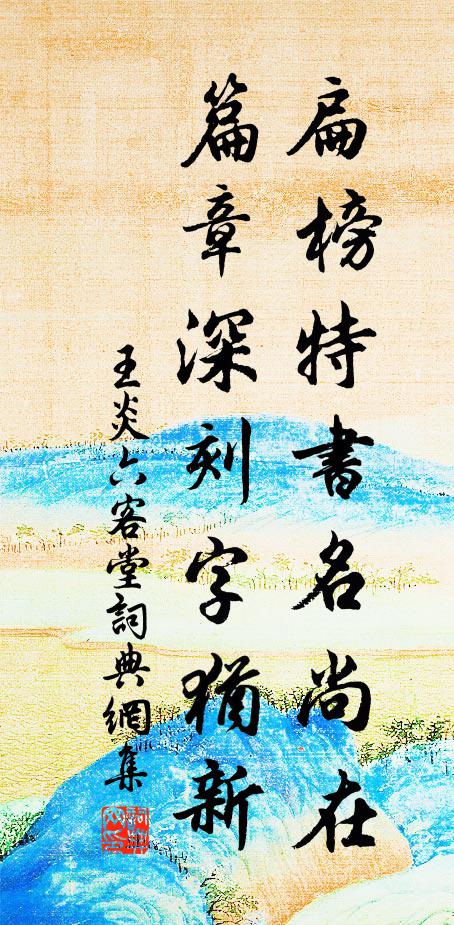 扁榜特書名尚在
篇章深刻字猶新
王炎六客堂詞典網集